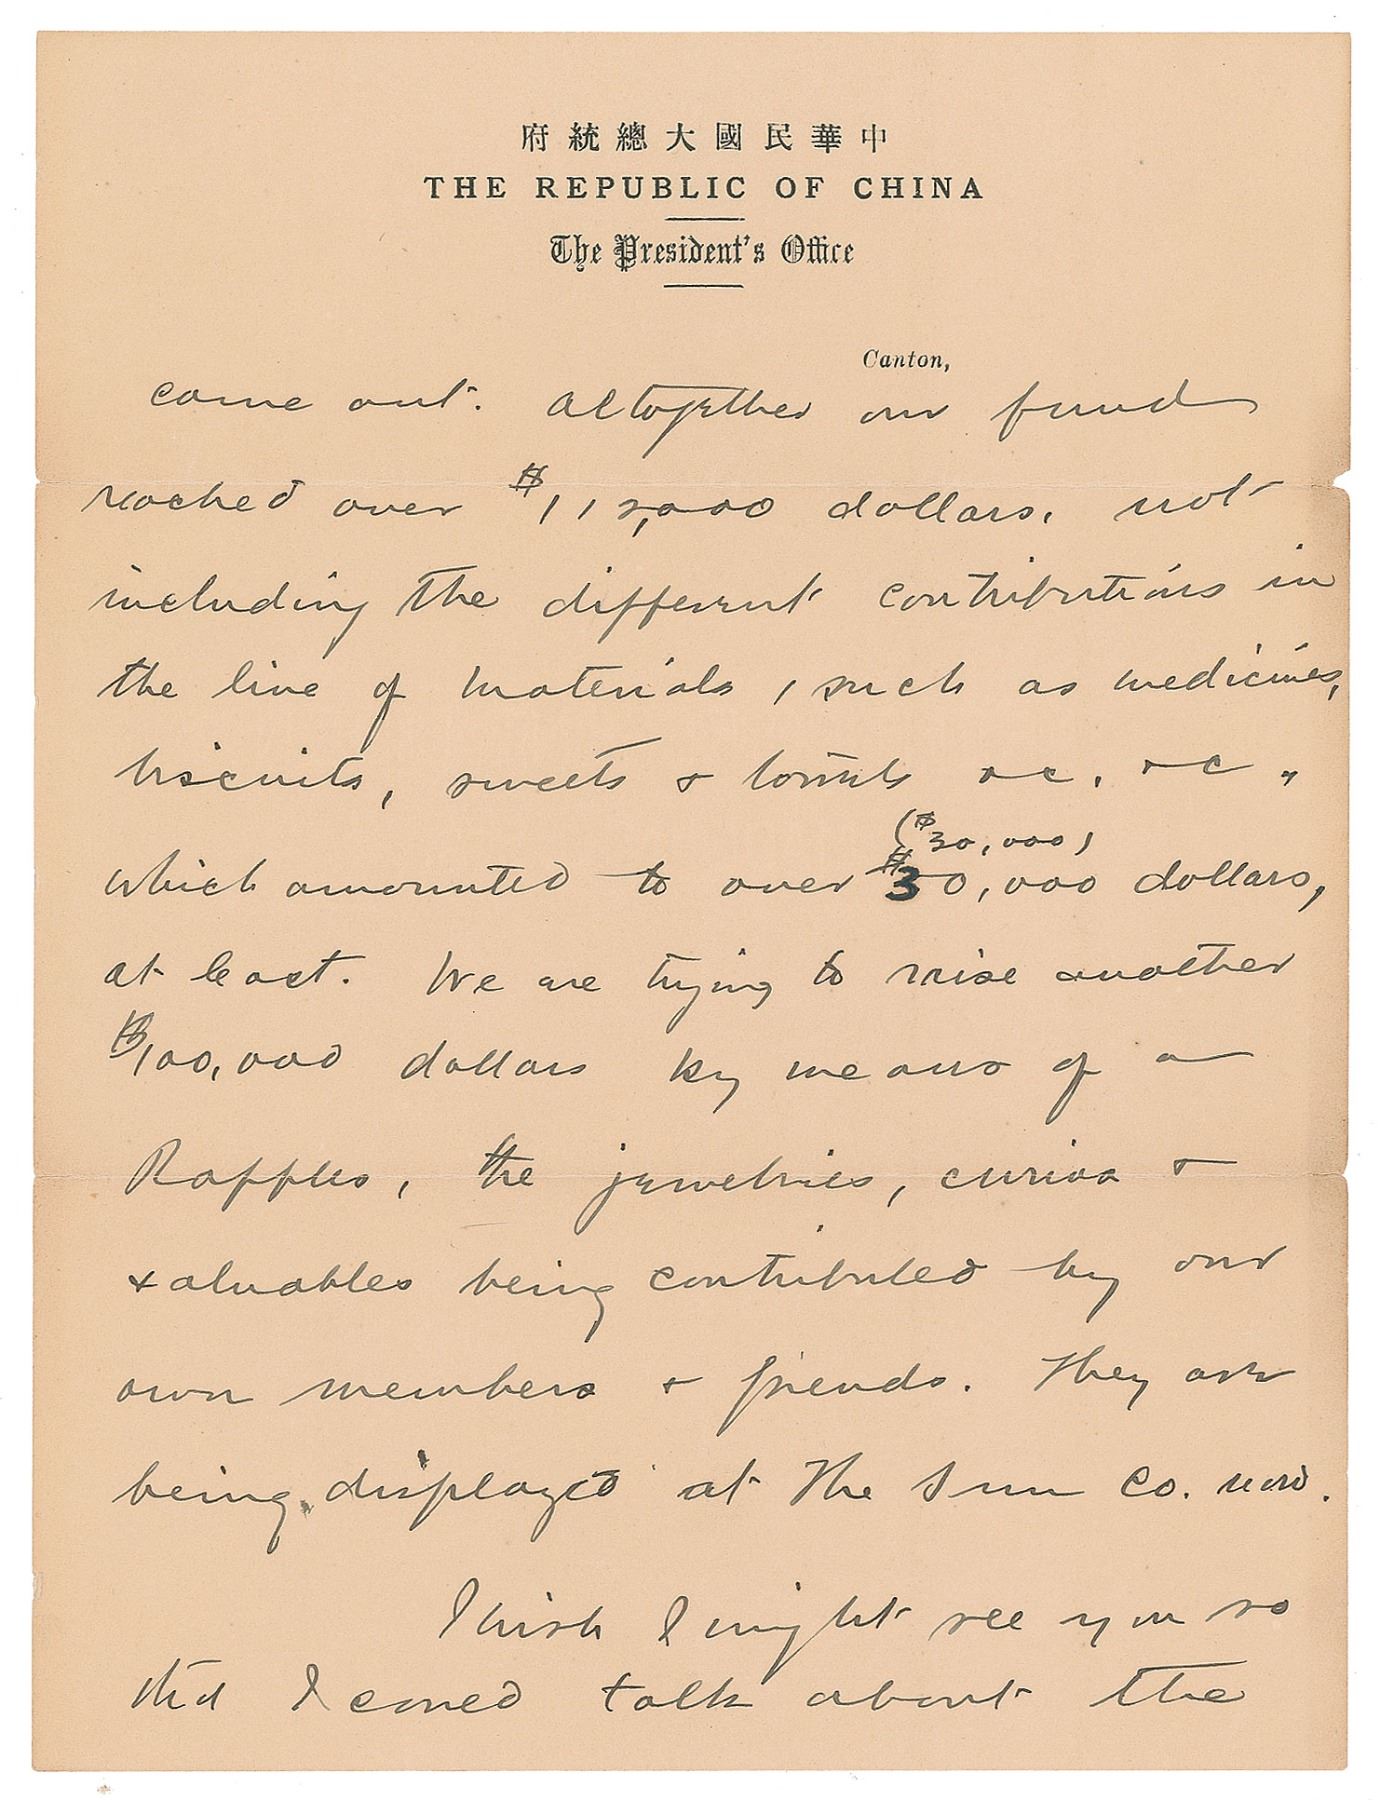 中華民國大總統府
THE REPUBLIC OF CHINA
The President's Office
Canton,
come out. Altogether our fund
reached over $112,000 dollars, not
including the different contributions in
the line of materials, such as medicines,
biscuits, sweets & &c. &c.,
($30,000)
which amounted to over $30,000 dollars,
at least. We are trying to raise another
$100,000 dollars by means of a
Raffles, the jewelries, curios &
valuables being contributed by our
own members & friends. They are
being displayed at the Sun Co. now.
I wish I might see you so
that I could talk about the